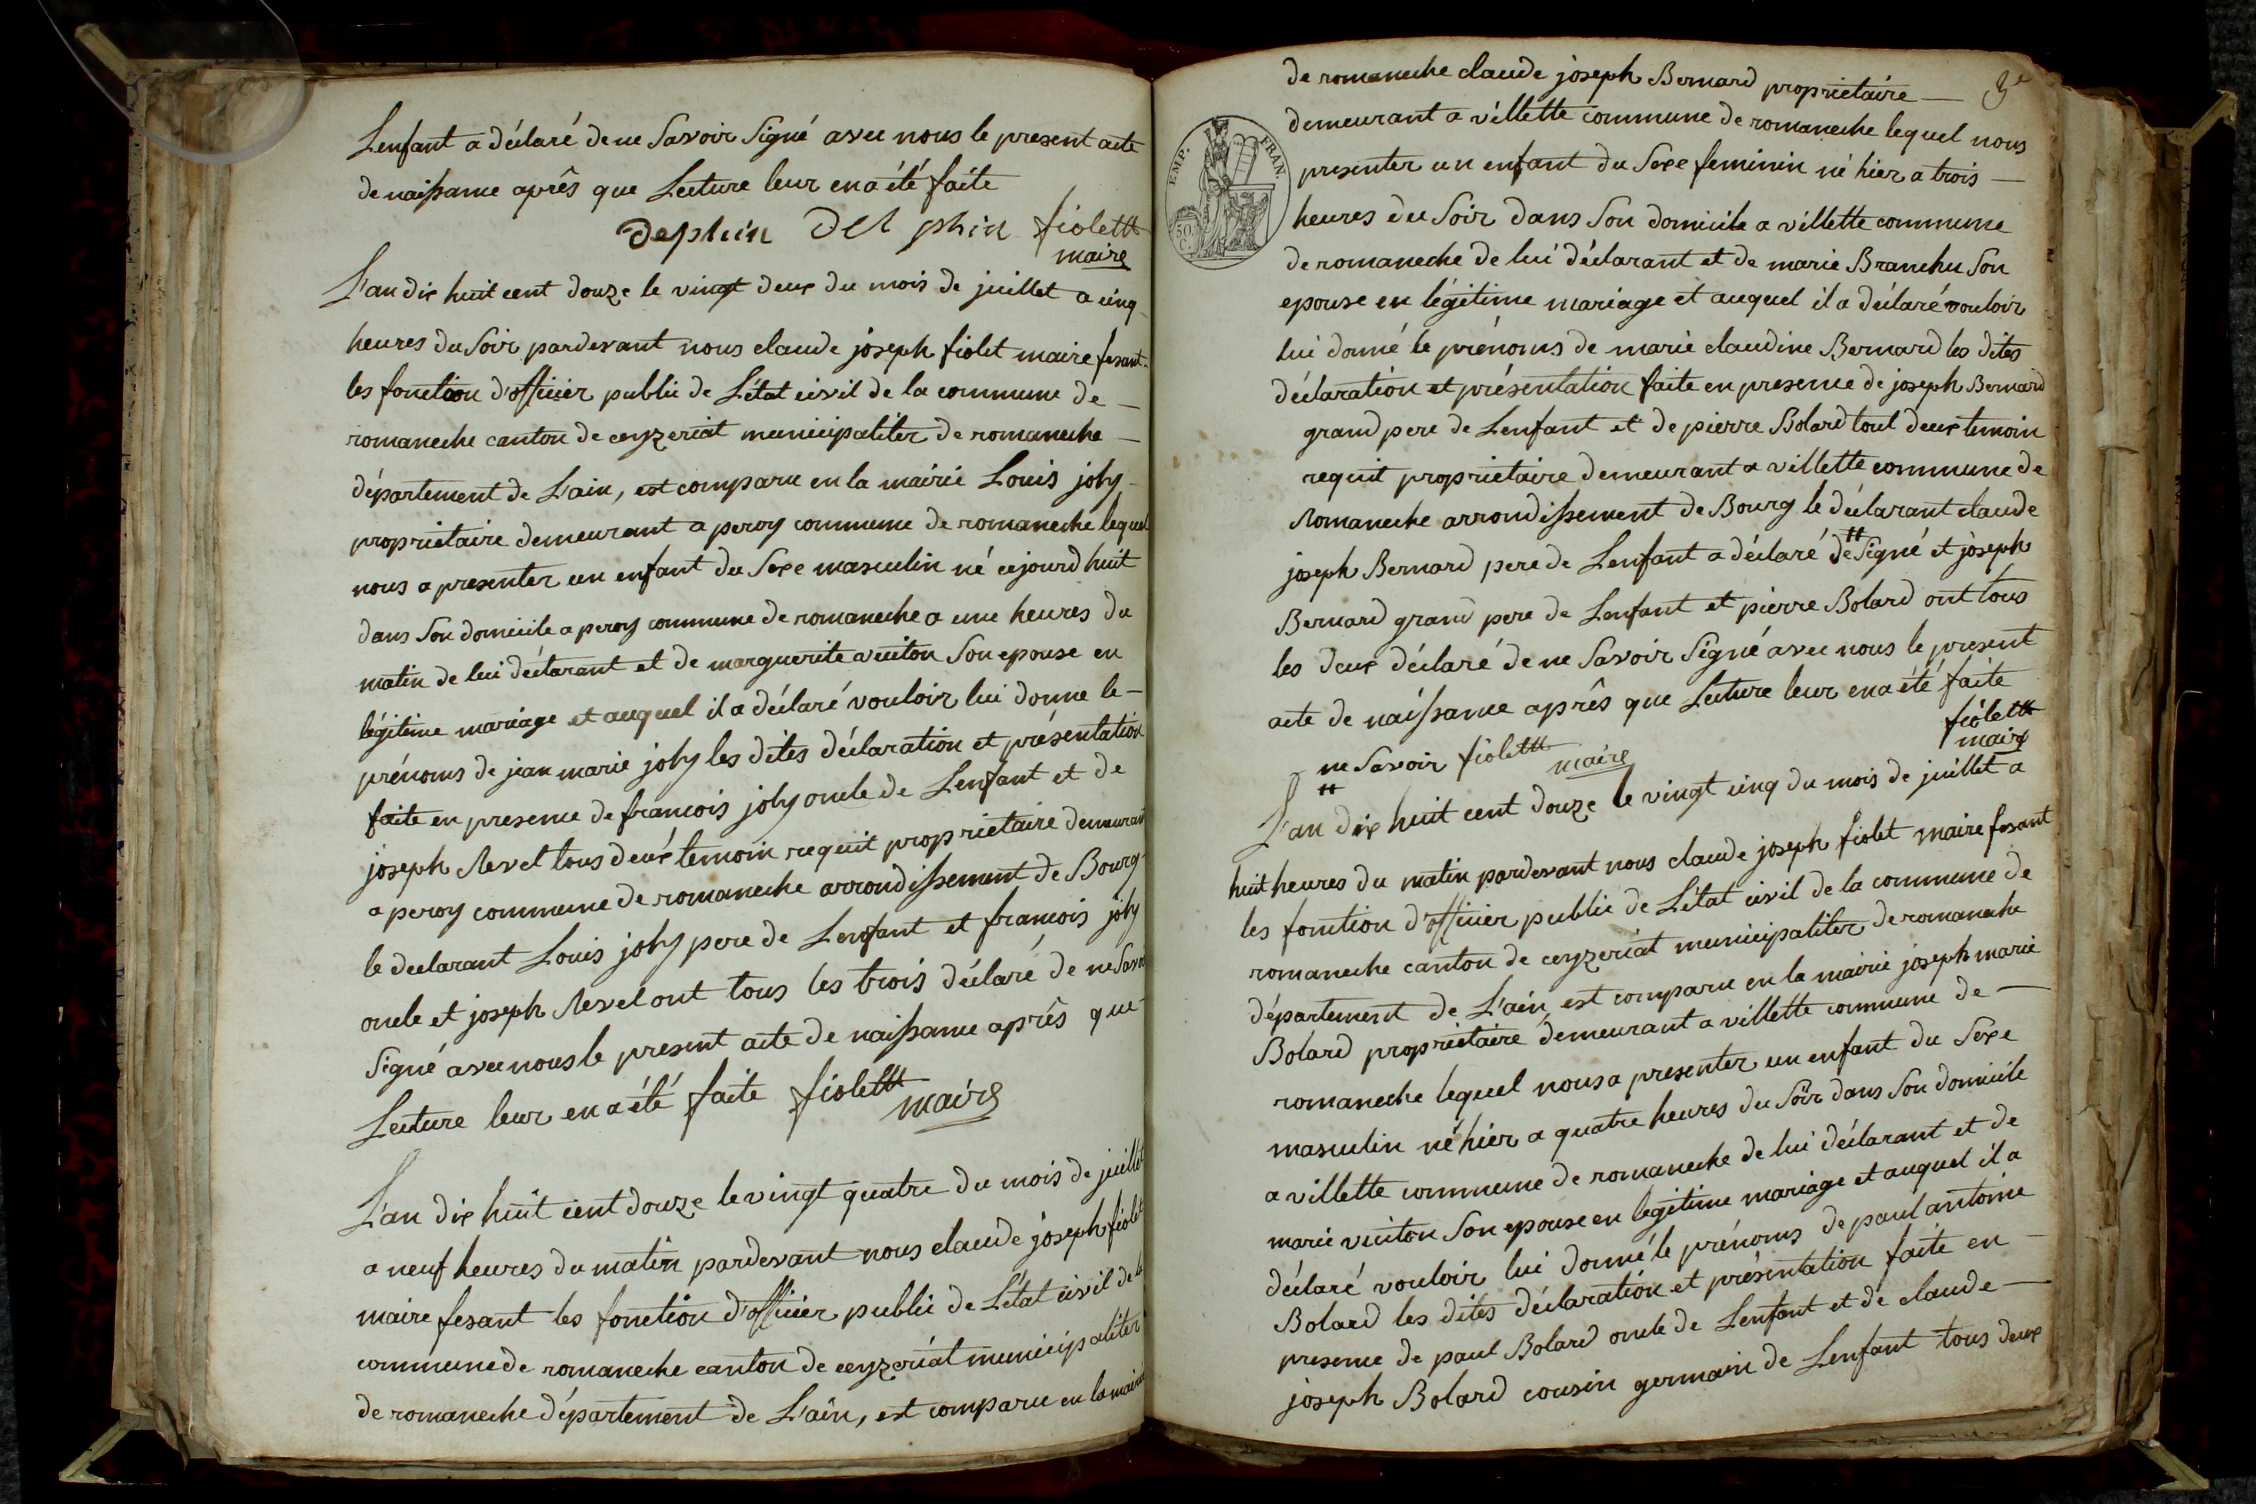 Lenfant a déclaré de ne Savoir Signé avec nous le present acte
de naissance après que Lecture leur en a été faite
Dephin Del phin fiolett
maire
L'an dix huit cent douze le vingt deux du mois de juillet a cinq
heures du Soir pardevant nous claude joseph fiolet maire fesant
les fonction d'officier public de L'état civil de la commune de
romaneche canton de ceyzeriat municipaliter de romaneche
département de L'ain, est comparu en la mairie Louis joly
propriétaire demeurant a peroy commune de romaneche lequel
nous a presenter un enfant du Sexe masculin né cejourd huit
dans Son domicile a peroy commune de romaneche a une heures du
matin de lui déclarant et de marguerite vuiton Son epouse en
légitime mariage et auquel il a déclaré vouloir lui donne le
prénoms de jean marie joly les dites déclaration et présentation
faite en presence de francois joly oncle de Lenfant et de
joseph Revel tous deux temoin requit propriétaire demeurant
a peroy commune de romaneche arrondissement de Bourg
le declarant Louis joly pere de Lenfant et francois joly
oncle et joseph Revel ont tous les trois déclaré de ne Savoir
Signé avec nous le present acte de naissance après que
Lecture leur en a été faite fiolett
maire
L'an dix huit cent douze le vingt quatre du mois de juillet
a neuf heures du matin pardevant nous claude joseph fiolet
maire fesant les fonction d'officier public de L'état civil de la
commune de romaneche canton de ceyzeriat municipaliter
de romaneche département de L'ain, est comparu en la mairie
3e
de romaneche claude joseph Bernard propriétaire
demeurant a villette commune de romaneche lequel nous
presenter un enfant du Sexe feminin né hier a trois
EMP. FRAN.
50 C.
heures du Soir dans Son domicile a villette commune
de romaneche de lui déclarant et de marie Branchu Son
epouse en légitime mariage et auquel il a déclaré vouloir
lui donné le prénoms de marie claudine Bernard les dites
déclaration et présentation faite en presence de joseph Bernard
grand pere de Lenfant et de pierre Bolard tout deux temoin
requit propriétaire demeurant a villette commune de
Romaneche arrondissement de Bourg le déclarant claude
joseph Bernard pere de Lenfant a déclaré de # Signé et joseph
Bernard grand pere de Lenfant et pierre Bolard ont tous
les deux déclaré de ne Savoir Signé avec nous le present
acte de naissance après que Lecture leur en a été faite
fiolett
maire
ne Savoir fiolett maire
#
L'an dix huit cent douze le vingt cinq du mois de juillet a
huit heures du matin pardevant nous claude joseph fiolet maire fesant
les fonction d'officier public de L'état civil de la commune de
romaneche canton de ceyzeriat municipaliter de romaneche
département de L'ain, est comparu en la mairie joseph marie
Bolard propriétaire demeurant a villette commune de
romaneche lequel nous a presenter un enfant du Sexe
masculin né hier a quatre heures du Soir dans Son domicile
a villette commune de romaneche de lui déclarant et de
marie vuiton Son epouse en legitime mariage et auquel il a
déclaré vouloir lui donné le prénoms de paul antoine
Bolard les dites déclaration et présentation faite en
presence de paul Bolard oncle de Lenfant et de claude
joseph Bolard cousin germain de Lenfant tous deux